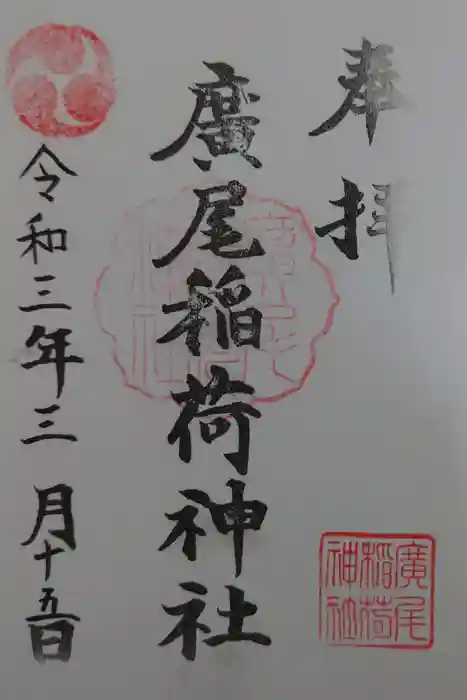 奉拝
廣尾稲荷神社
令和三年三月十五日
廣尾
稲荷
神社